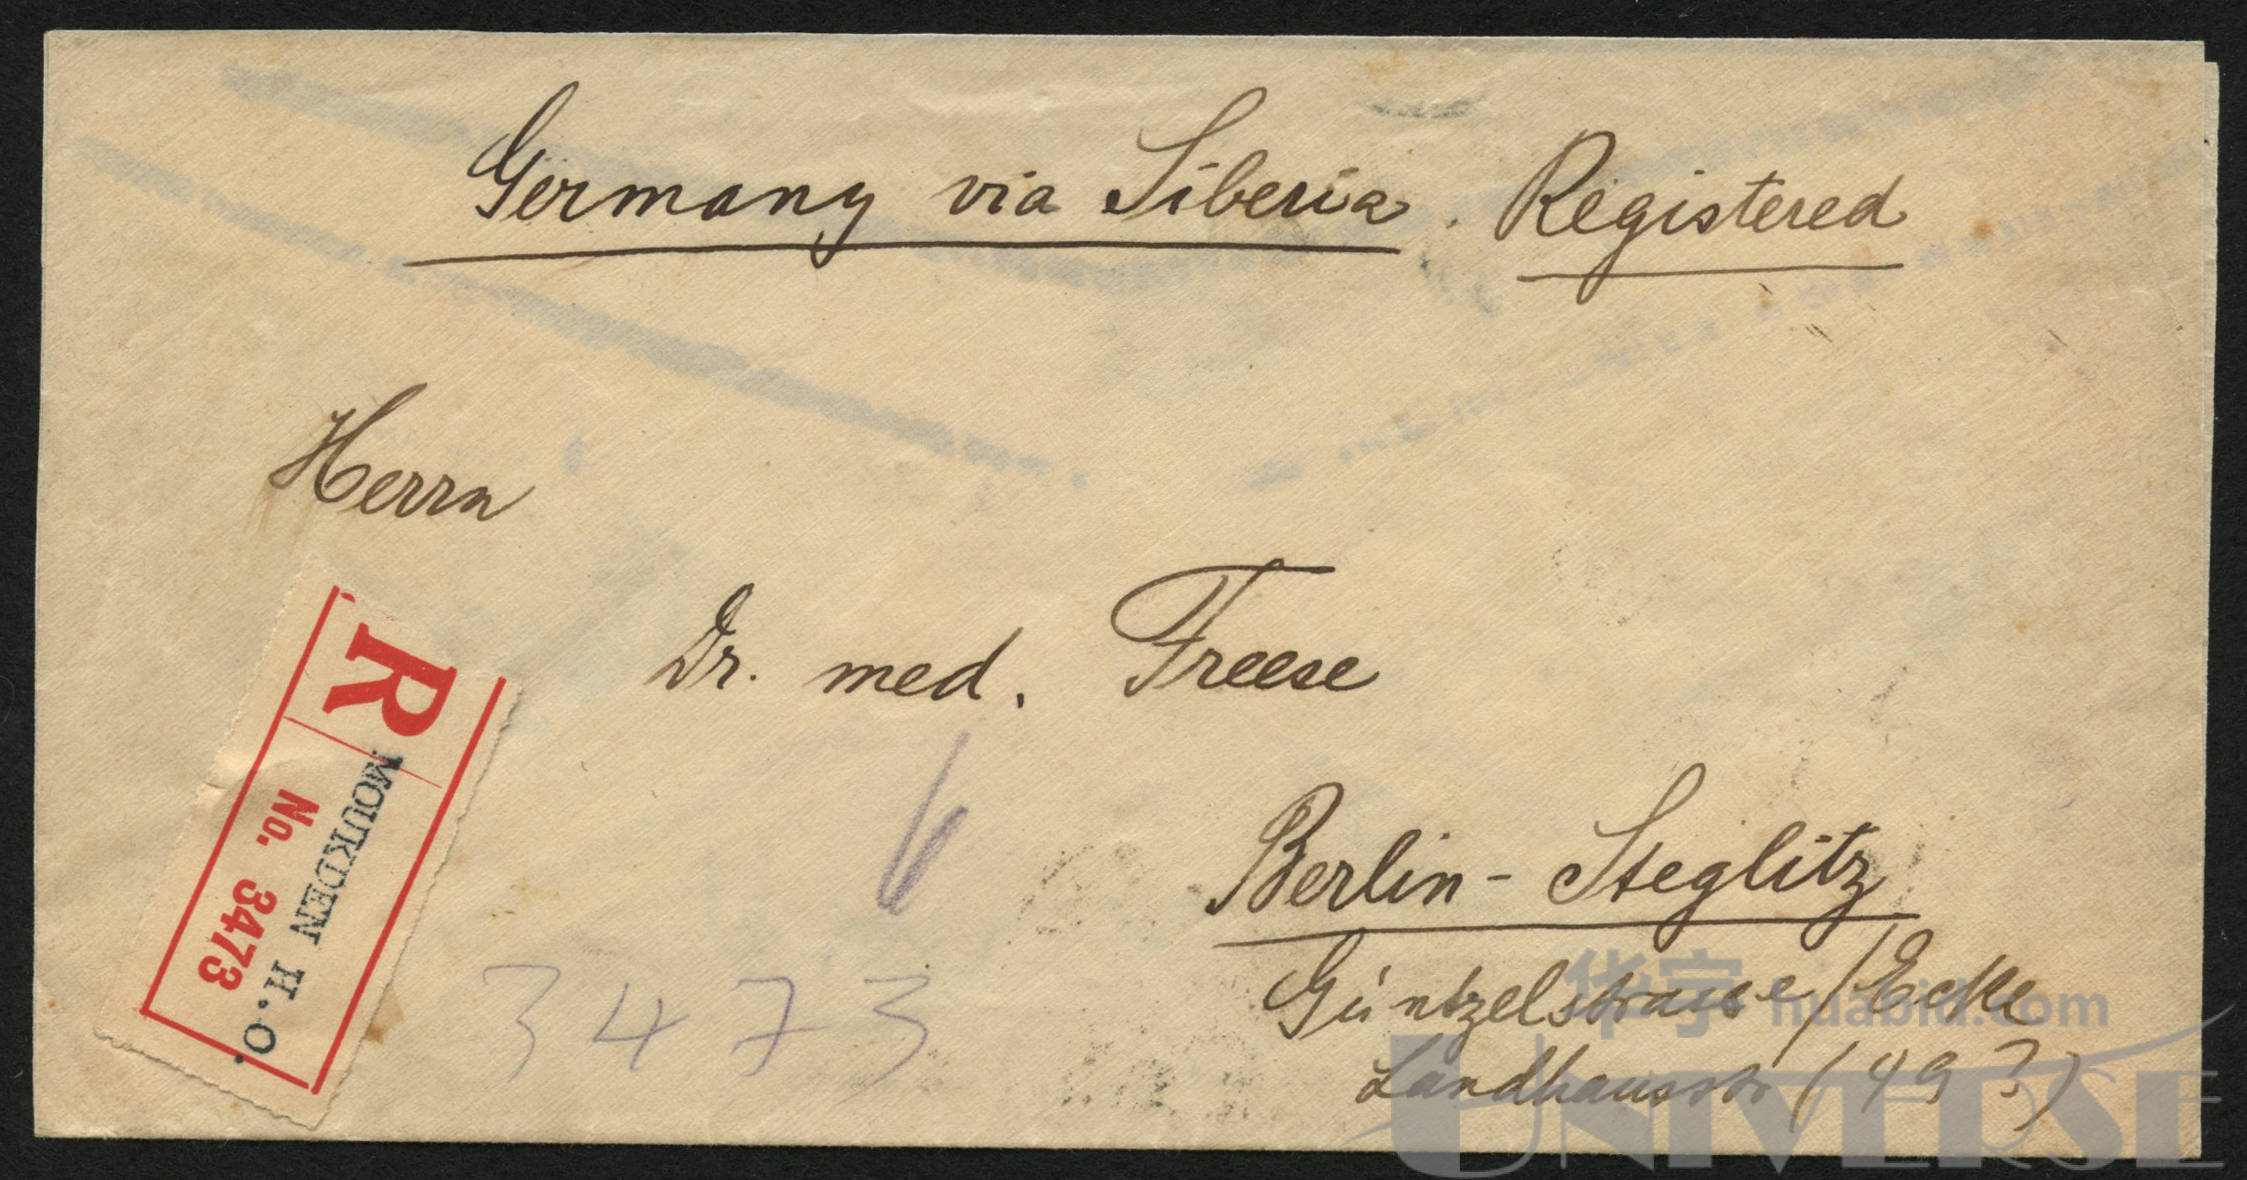 Germany via Siberia. Registered
Herrn
Dr. med. Freese
Berlin-Steglitz
Güntzelstrasse/Ecke
Landhausstr (49?)
R
MOUKDEN H.O.
No. 3473
3473
华宇 huabid.com
UNIVERSE